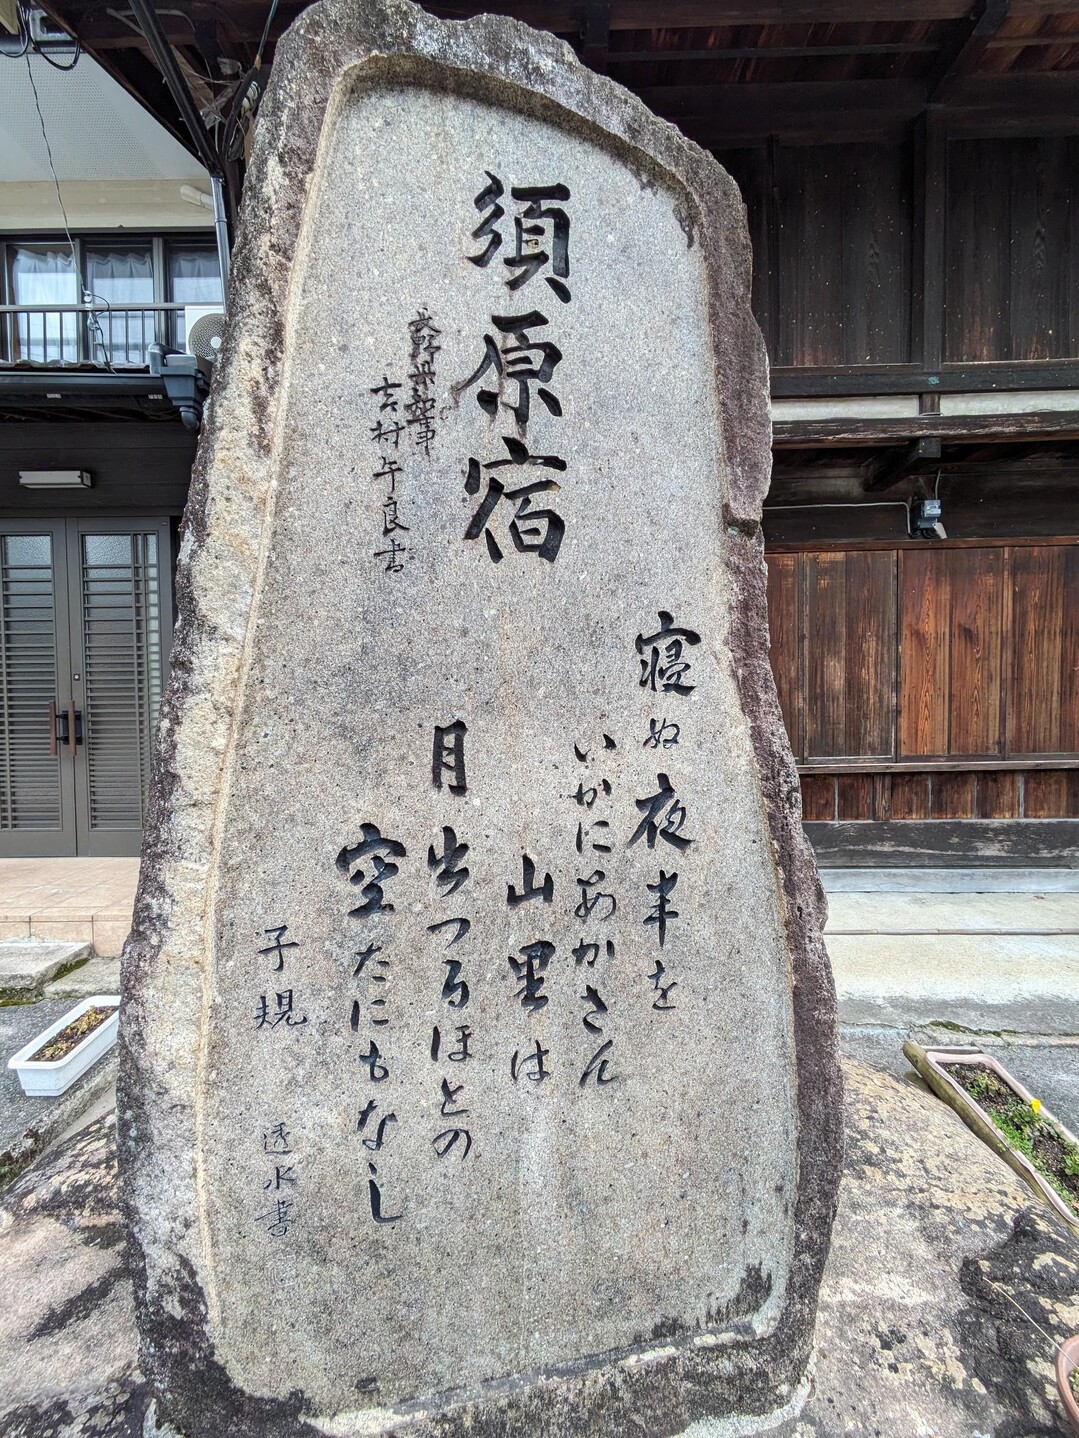 須原宿
長野県知事
吉村午良書
寝ぬ夜半を
いかにあかさん
山里は
月出つるほとの
空たにもなし
子規
透水書